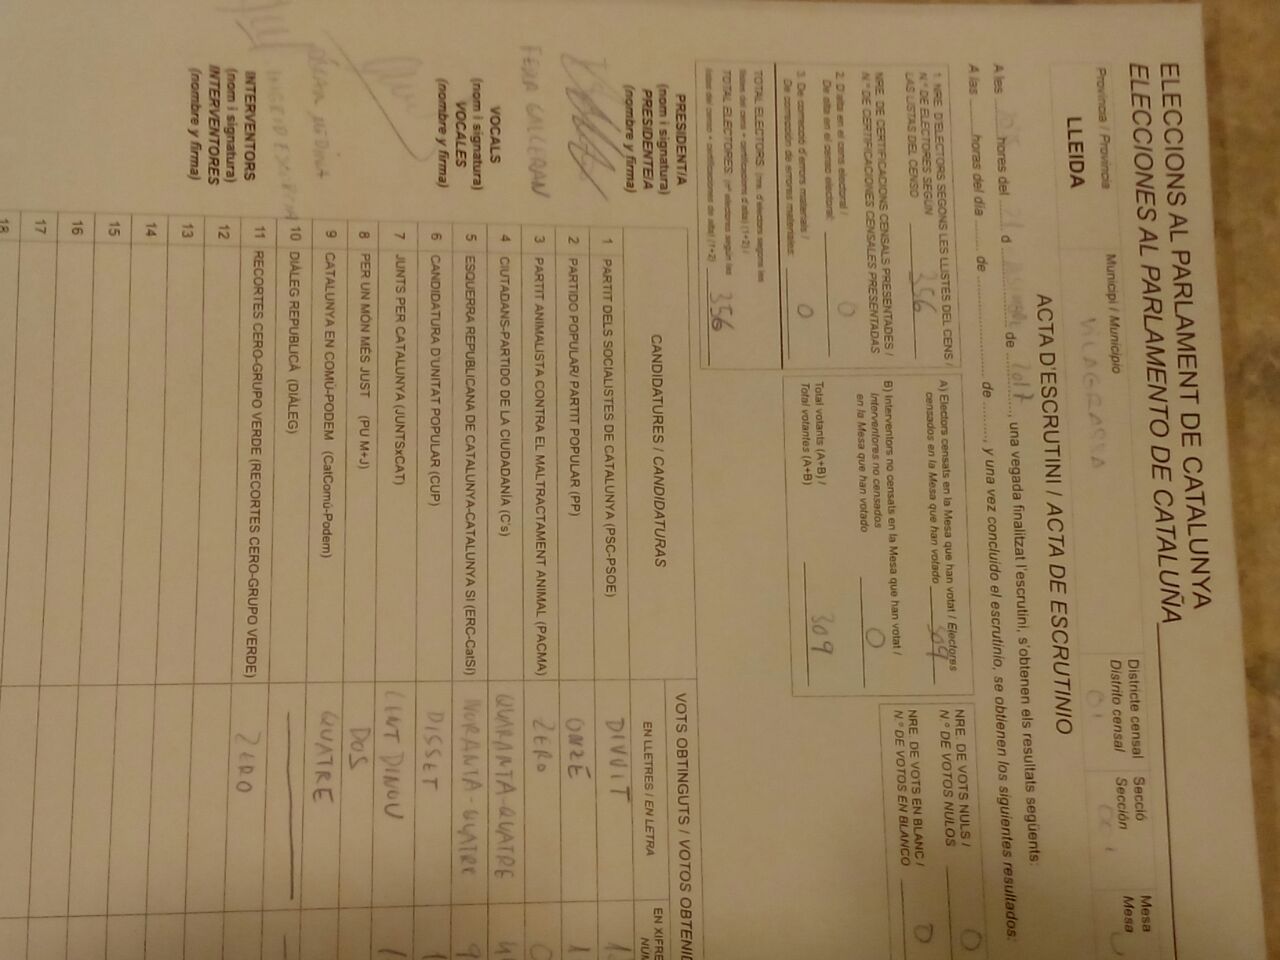 ELECCIONS AL PARLAMENT DE CATALUNYA
ELECCIONES AL PARLAMENTO DE CATALUÑA
Província / Provincia
LLEIDA
Municipi / Municipio
VILAGRASSA
Districte censal
Distrito censal
01
Secció
Sección
001
Mesa
Mesa
ACTA D'ESCRUTINI / ACTA DE ESCRUTINIO
A les hores del 21 d de 2017, una vegada finalitzat l'escrutini, s'obtenen els resultats següents:
A las horas del día de de, y una vez concluido el escrutinio, se obtienen los siguientes resultados:
1. NRE. D'ELECTORS SEGONS LES LLISTES DEL CENS /
N.º DE ELECTORES SEGÚN
LAS LISTAS DEL CENSO 356
NRE. DE CERTIFICACIONS CENSALS PRESENTADES /
N.º DE CERTIFICACIONES CENSALES PRESENTADAS
2. D'alta en el cens electoral /
De alta en el censo electoral: 0
3. De correcció d'errors materials /
De corrección de errores materiales: 0
TOTAL ELECTORS. (nre. d'electors segons les
llistes del cens + certificacions d'alta) (1+2) /
TOTAL ELECTORES. (nº electores según las
listas del censo + certificaciones de alta) (1+2) 356
A) Electors censats en la Mesa que han votat / Electores
censados en la Mesa que han votado 309
B) Interventors no censats en la Mesa que han votat /
Interventores no censados
en la Mesa que han votado 0
Total votants (A+B) /
Total votantes (A+B) 309
NRE. DE VOTS NULS /
N.º DE VOTOS NULOS 0
NRE. DE VOTS EN BLANC /
N.º DE VOTOS EN BLANCO 0
CANDIDATURES / CANDIDATURAS
VOTS OBTINGUTS / VOTOS OBTENID
EN LLETRES / EN LETRA
EN XIFRE
1 PARTIT DELS SOCIALISTES DE CATALUNYA (PSC-PSOE) DIVUIT
2 PARTIDO POPULAR/ PARTIT POPULAR (PP) ONZE
3 PARTIT ANIMALISTA CONTRA EL MALTRACTAMENT ANIMAL (PACMA) ZERO
4 CIUTADANS-PARTIDO DE LA CIUDADANÍA (C's) QUARANTA-QUATRE
5 ESQUERRA REPUBLICANA DE CATALUNYA-CATALUNYA SÍ (ERC-CatSÍ) NORANTA-QUATRE
6 CANDIDATURA D'UNITAT POPULAR (CUP) DISSET
7 JUNTS PER CATALUNYA (JUNTSxCAT) CENT DINOU
8 PER UN MÓN MÉS JUST (PU M+J) DOS
9 CATALUNYA EN COMÚ-PODEM (CatComú-Podem) QUATRE
10 DIÀLEG REPUBLICÀ (DIÀLEG)
11 RECORTES CERO-GRUPO VERDE (RECORTES CERO-GRUPO VERDE) ZERO
12
13
14
15
16
17
18
PRESIDENT/A
(nom i signatura)
PRESIDENTE/A
(nombre y firma)
VOCALS
(nom i signatura)
VOCALES
(nombre y firma)
INTERVENTORS
(nom i signatura)
INTERVENTORES
(nombre y firma)